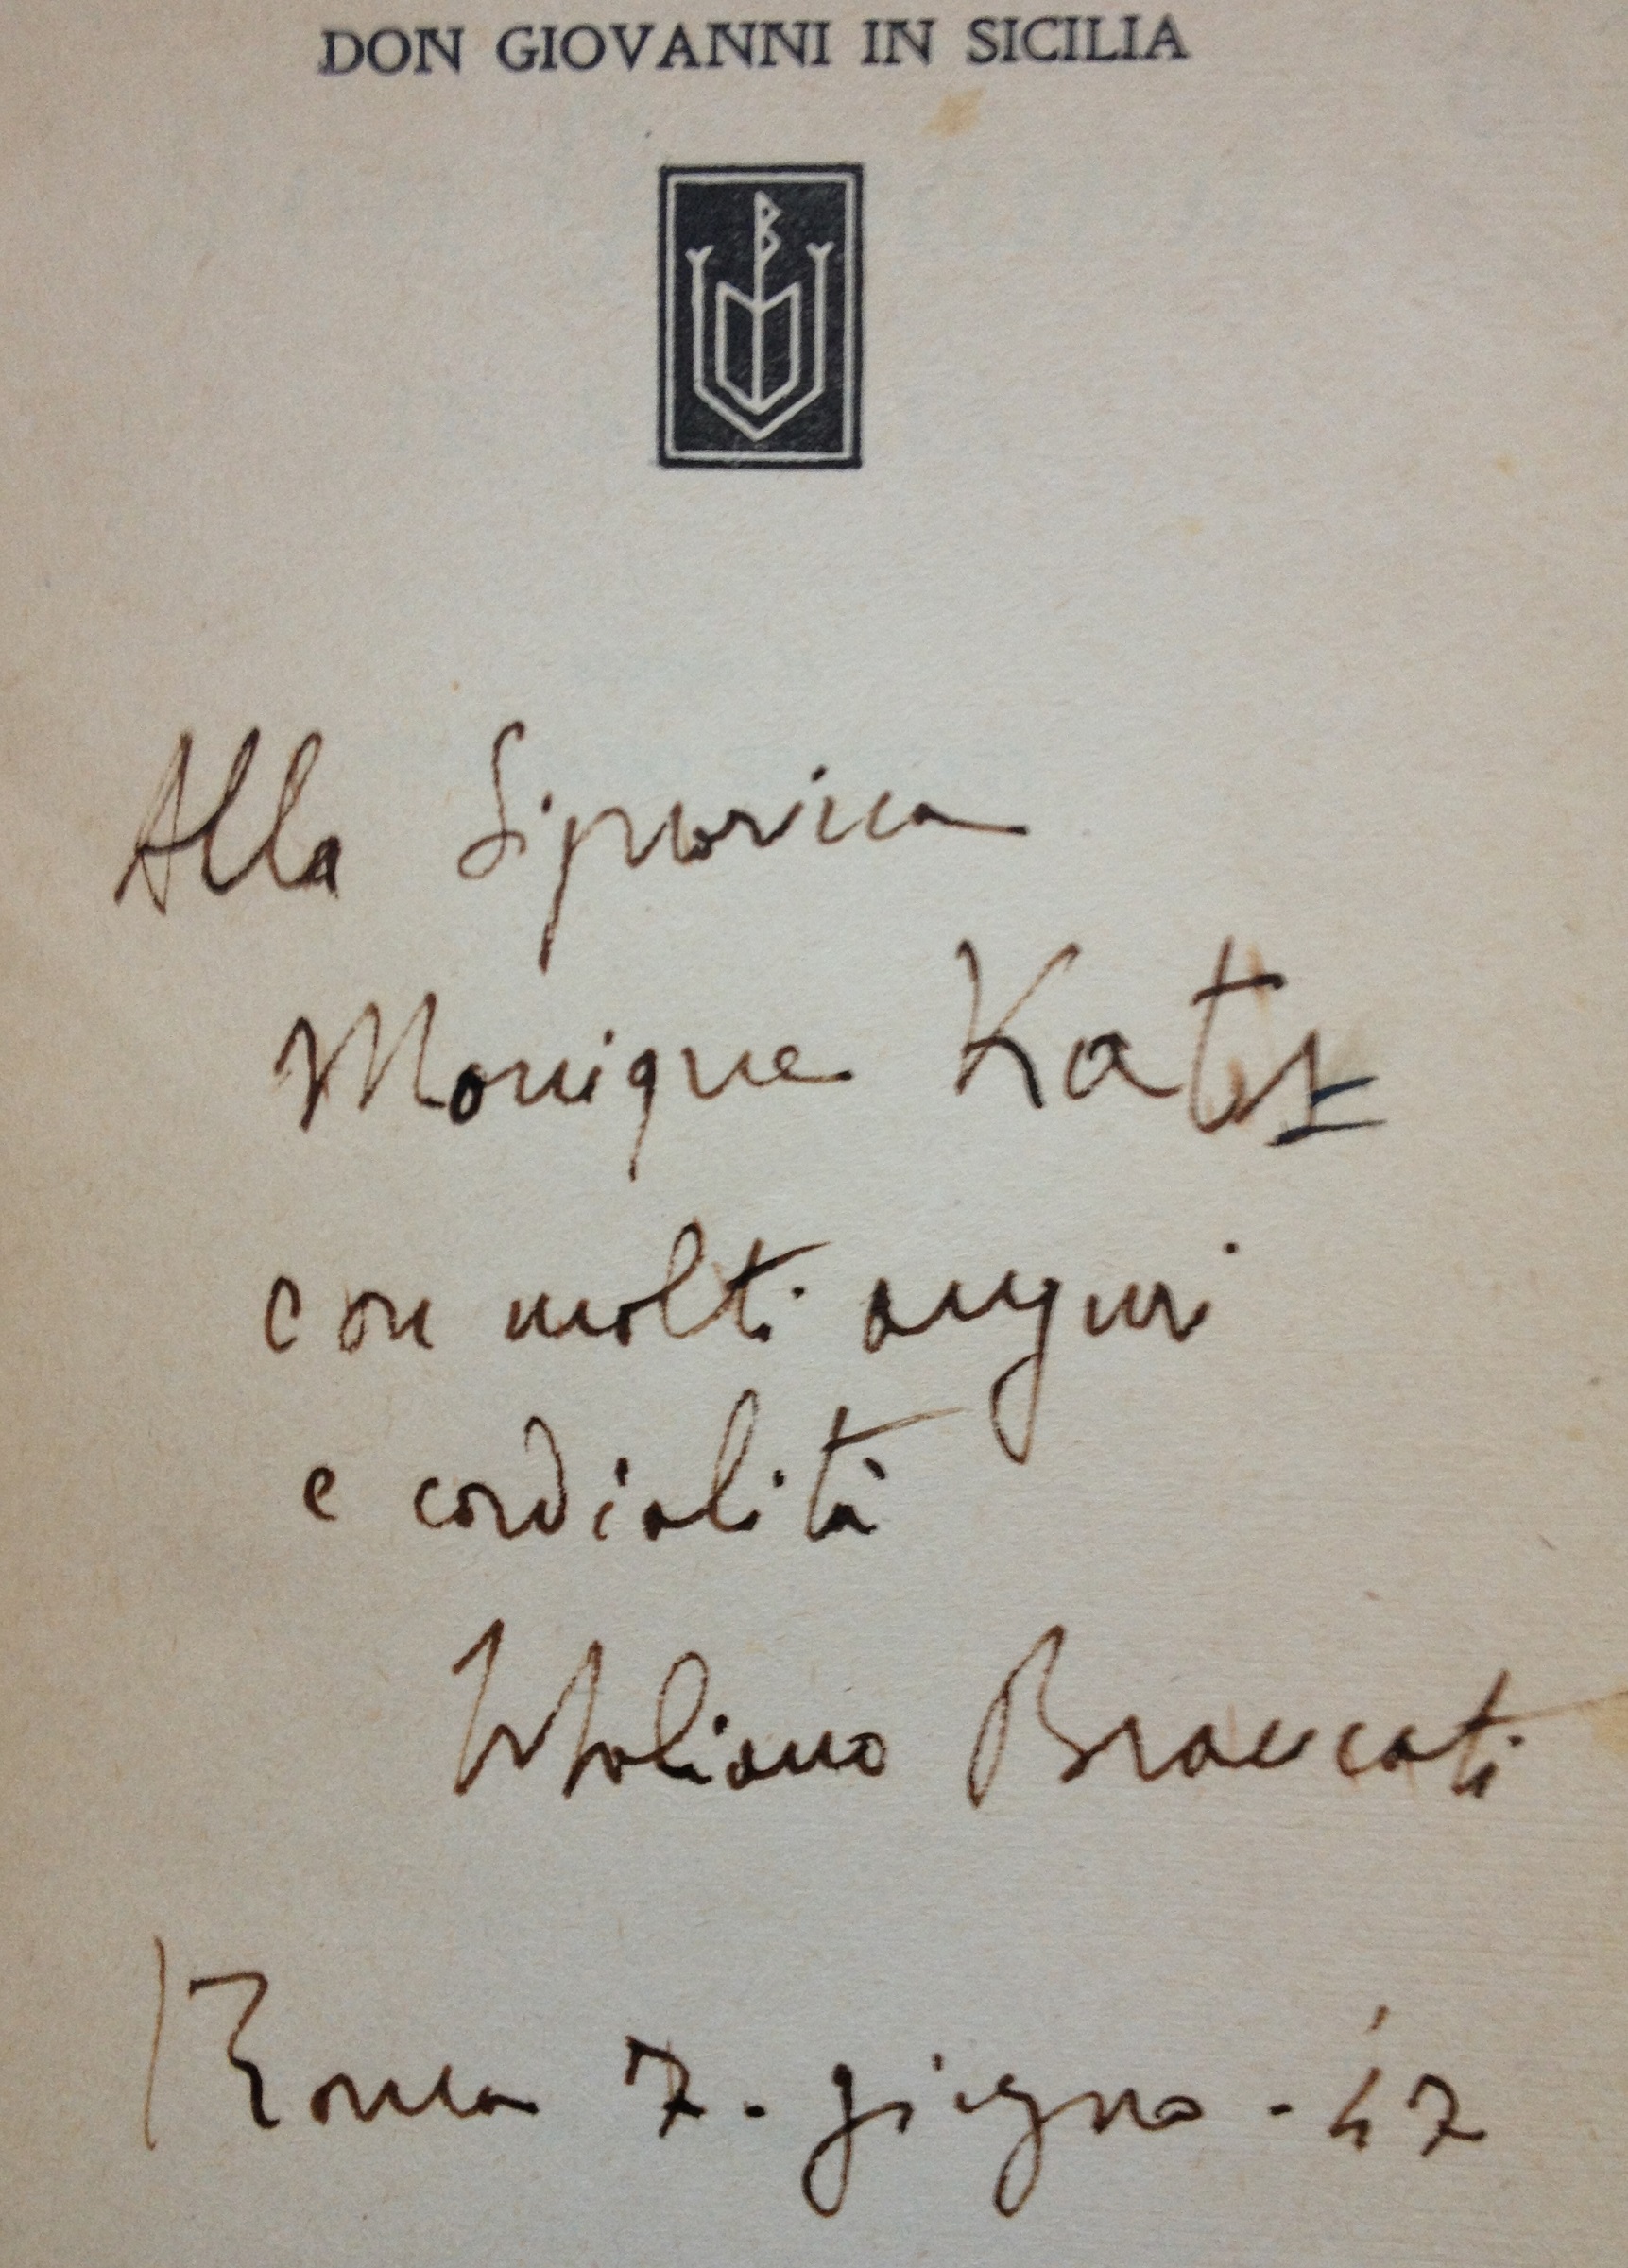 DON GIOVANNI IN SICILIA
B
Alla Signorina
Monique Katz
con molti auguri
e cordialità
Vitaliano Brancati
Roma 7. giugno - '47